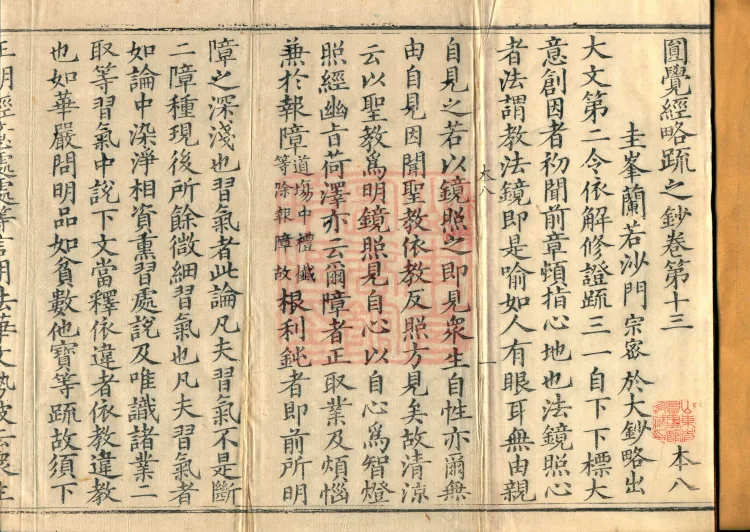 圓覺經略疏之鈔卷第十三
圭峯蘭若沙門宗密於大鈔略出 本八
大文第二令依解修證疏三一自下下標大
意創因者初聞前章頓指心地也法鏡照心
者法謂教法鏡即是喻如人有眼耳無由親
本八 一
自見之若以鏡照之即見衆生自性亦爾無
由自見因聞聖教依教反照方見矣故清涼
云以聖教爲明鏡照見自心以自心爲智燈
照經幽旨荷澤亦云爾障者正取業及煩惱
兼於報障道塲中禮懺等除報障故根利鈍者即前所明
障之深淺也習氣者此論凡夫習氣不是斷
二障種現後所餘微細習氣也凡夫習氣者
如論中染淨相資熏習處說及唯識諸業二
取等習氣中說下文當釋依違者依教違教
也如華嚴問明品如貧數他寶等疏故須下